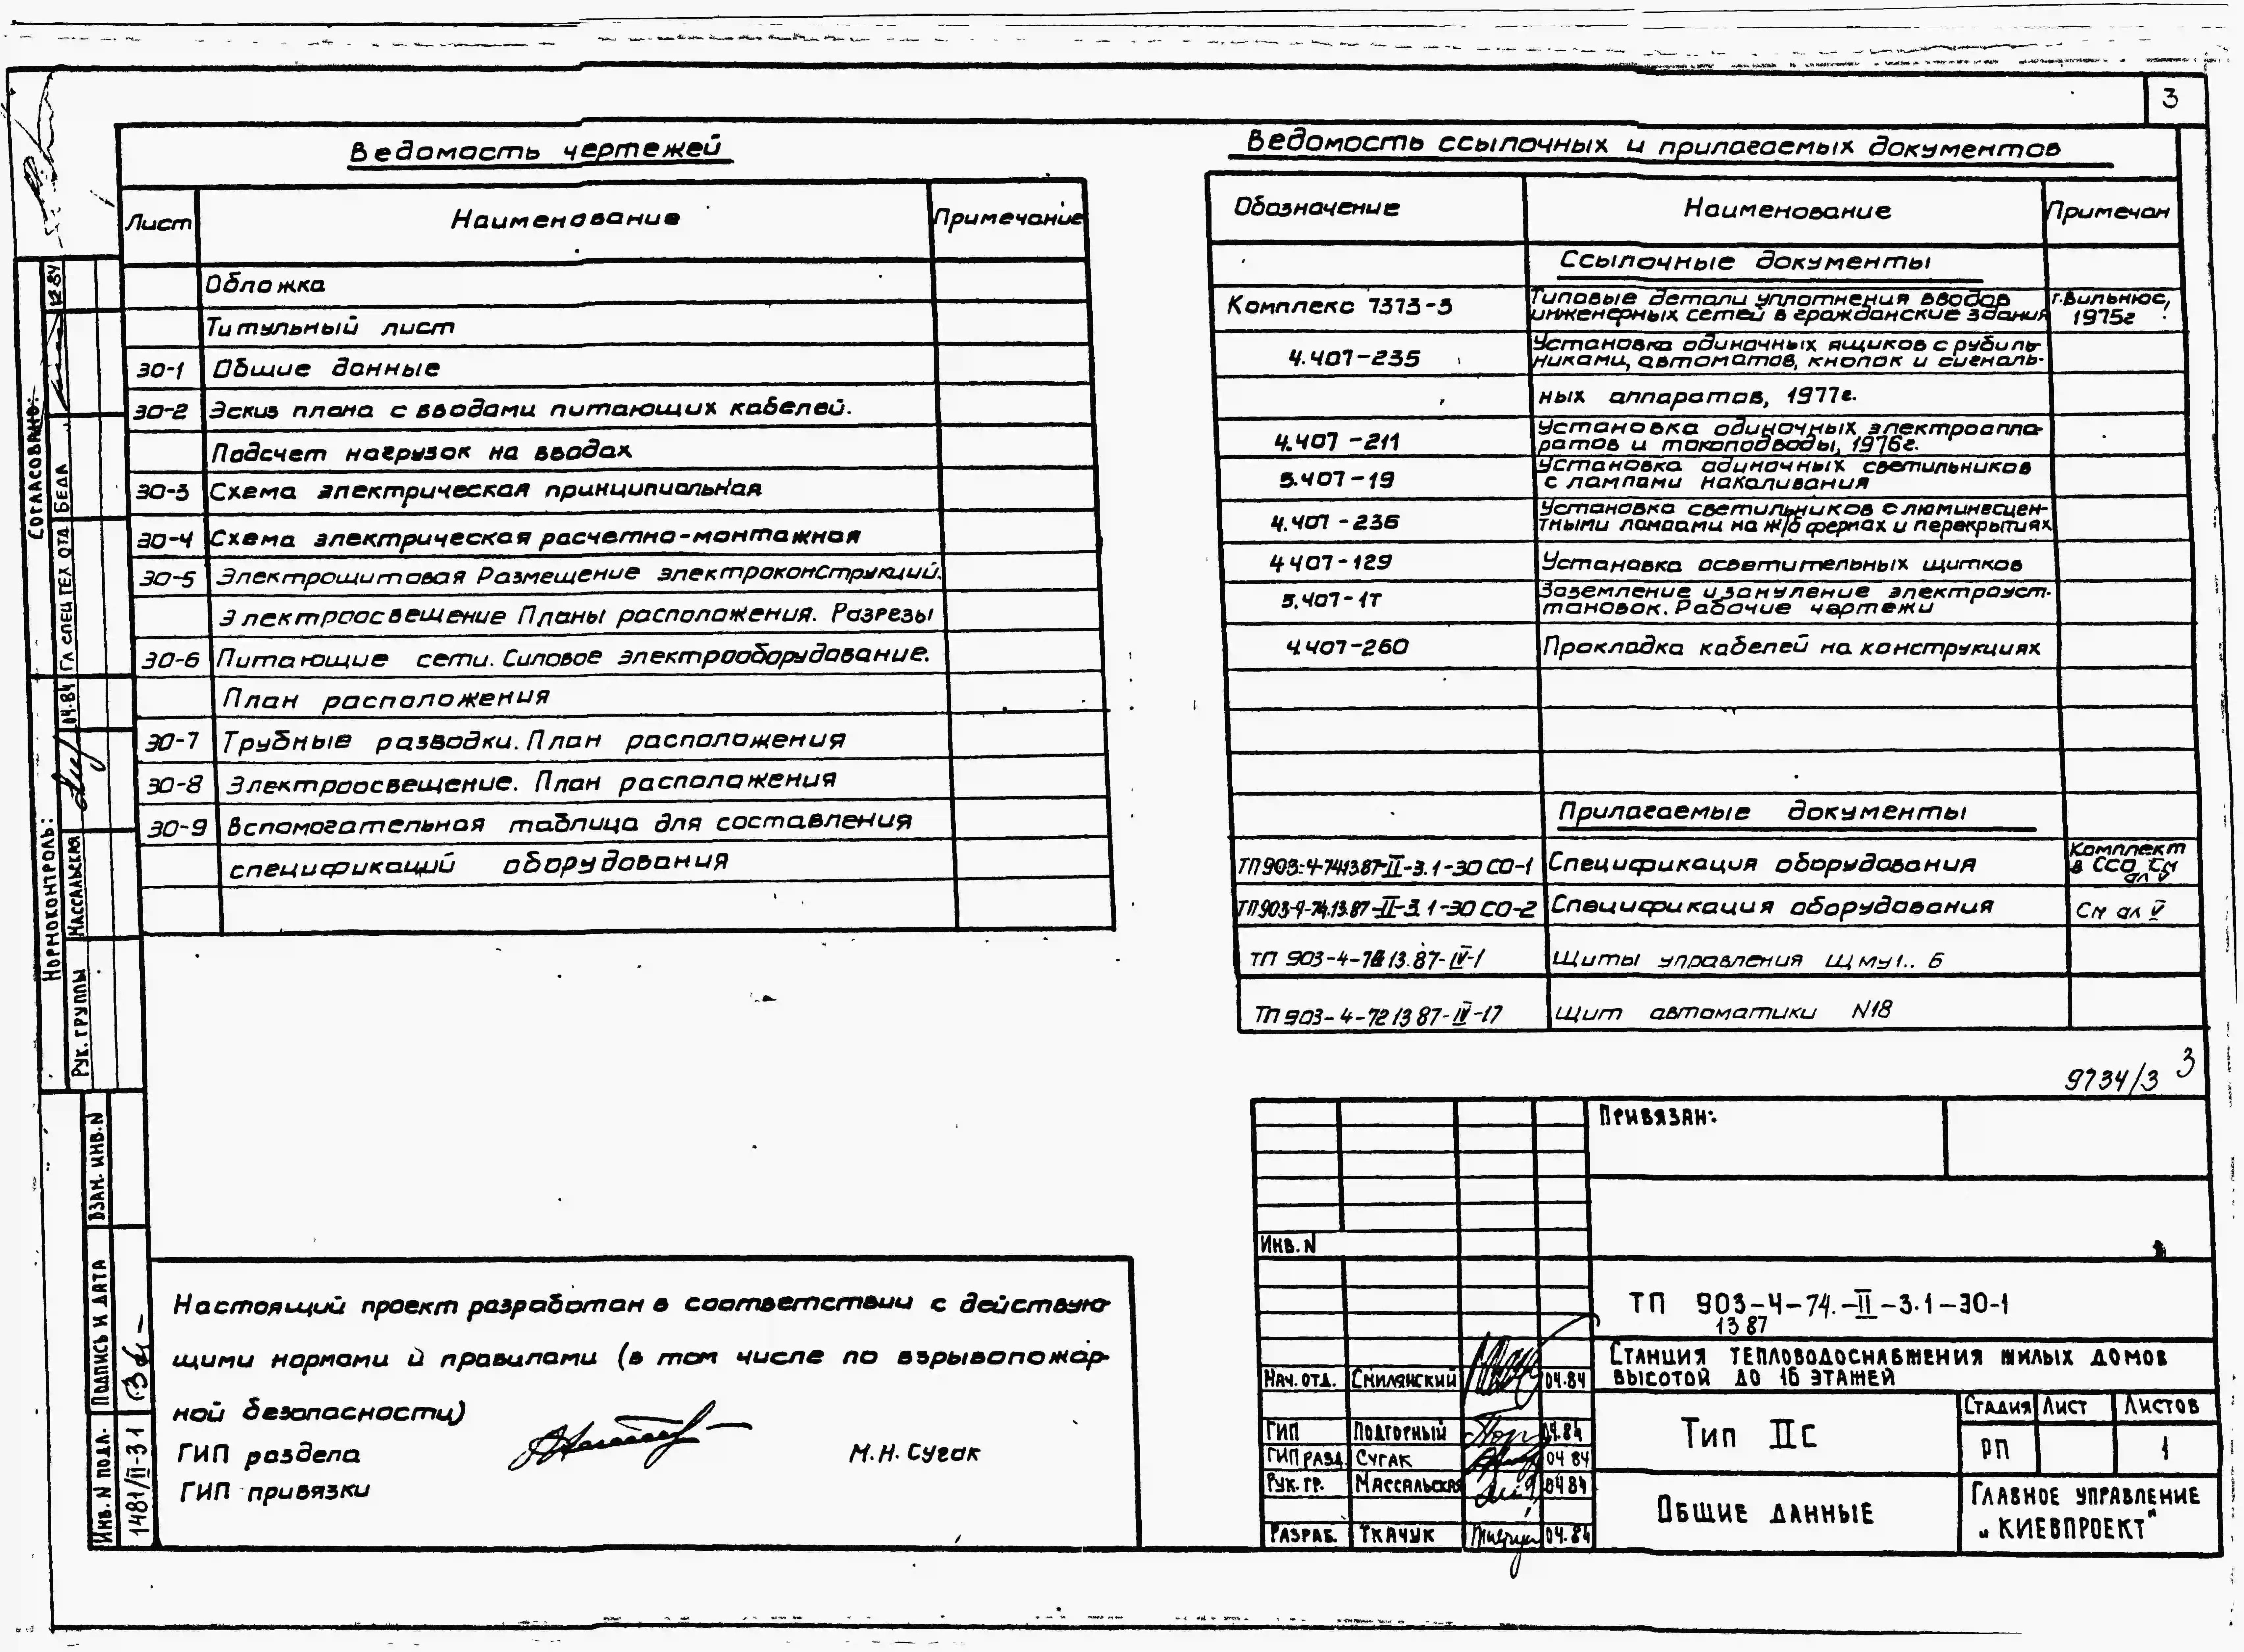 3
Ведомость чертежей
Лист Наименование Примечание
Обложка
Титульный лист
ЭО-1 Общие данные
ЭО-2 Эскиз плана с вводами питающих кабелей.
Подсчет нагрузок на вводах
ЭО-3 Схема электрическая принципиальная
ЭО-4 Схема электрическая расчетно-монтажная
ЭО-5 Электрощитовая Размещение электроконструкций.
Электроосвещение Планы расположения. Разрезы
ЭО-6 Питающие сети. Силовое электрооборудование.
План расположения
ЭО-7 Трубные разводки. План расположения
ЭО-8 Электроосвещение. План расположения
ЭО-9 Вспомогательная таблица для составления
спецификаций оборудования
Ведомость ссылочных и прилагаемых документов
Обозначение Наименование Примечан
Ссылочные документы
Комплекс 7373-3 Типовые детали уплотнения вводов г. Вильнюс,
инженерных сетей в гражданские здания 1975г
4.407-235 Установка одиночных ящиков с рубиль-
никами, автоматов, кнопок и сигналь-
ных аппаратов, 1977г.
4.407-211 Установка одиночных электроаппа-
ратов и токоподводы, 1976г.
5.407-19 Установка одиночных светильников
с лампами накаливания
4.407-236 Установка светильников с люминесцен-
тными лампами на ж/б фермах и перекрытиях
4 407-129 Установка осветительных щитков
5.407-1Т Заземление и зануление электроуст-
тановок. Рабочие чертежи
4.407-260 Прокладка кабелей на конструкциях
Прилагаемые документы
ТП 903-4-74.13.87-II-3.1-ЭО СО-1 Спецификация оборудования Комплект
в ССО См
ал V
ТП 903-4-74.13.87-II-3.1-ЭО СО-2 Спецификация оборудования См ал V
ТП 903-4-13.87-IV-1 Щиты управления ЩМУ1.. Б
ТП 903-4-72 13 87-IV-17 Щит автоматики N18
9734/3 3
Согласовано:
Гл спец тех отд Беда 12.84
Нормоконтроль:
Рук. группы Массальская 04.84
Взан. инв. N
Подпись и дата
Инв. N подл. 1481/II-3.1
Настоящий проект разработан в соответствии с действую-
щими нормами и правилами (в том числе по взрывопожар-
ной безопасности)
ГИП раздела М.Н. Сугак
ГИП привязки
Привязан:
Инв. N
ТП 903-4-74.-II-3.1-ЭО-1
13 87
Станция тепловодоснабжения жилых домов
высотой до 16 этажей
Нач. отд. Смилянский 04.84
ГИП Подгорный 04.84
ГИП разд Сугак 04 84
Рук. гр. Массальская 04 84
Разраб. Ткачук 04.84
Тип IIс
Стадия Лист Листов
РП 1
Общие данные
Главное управление
„Киевпроект"